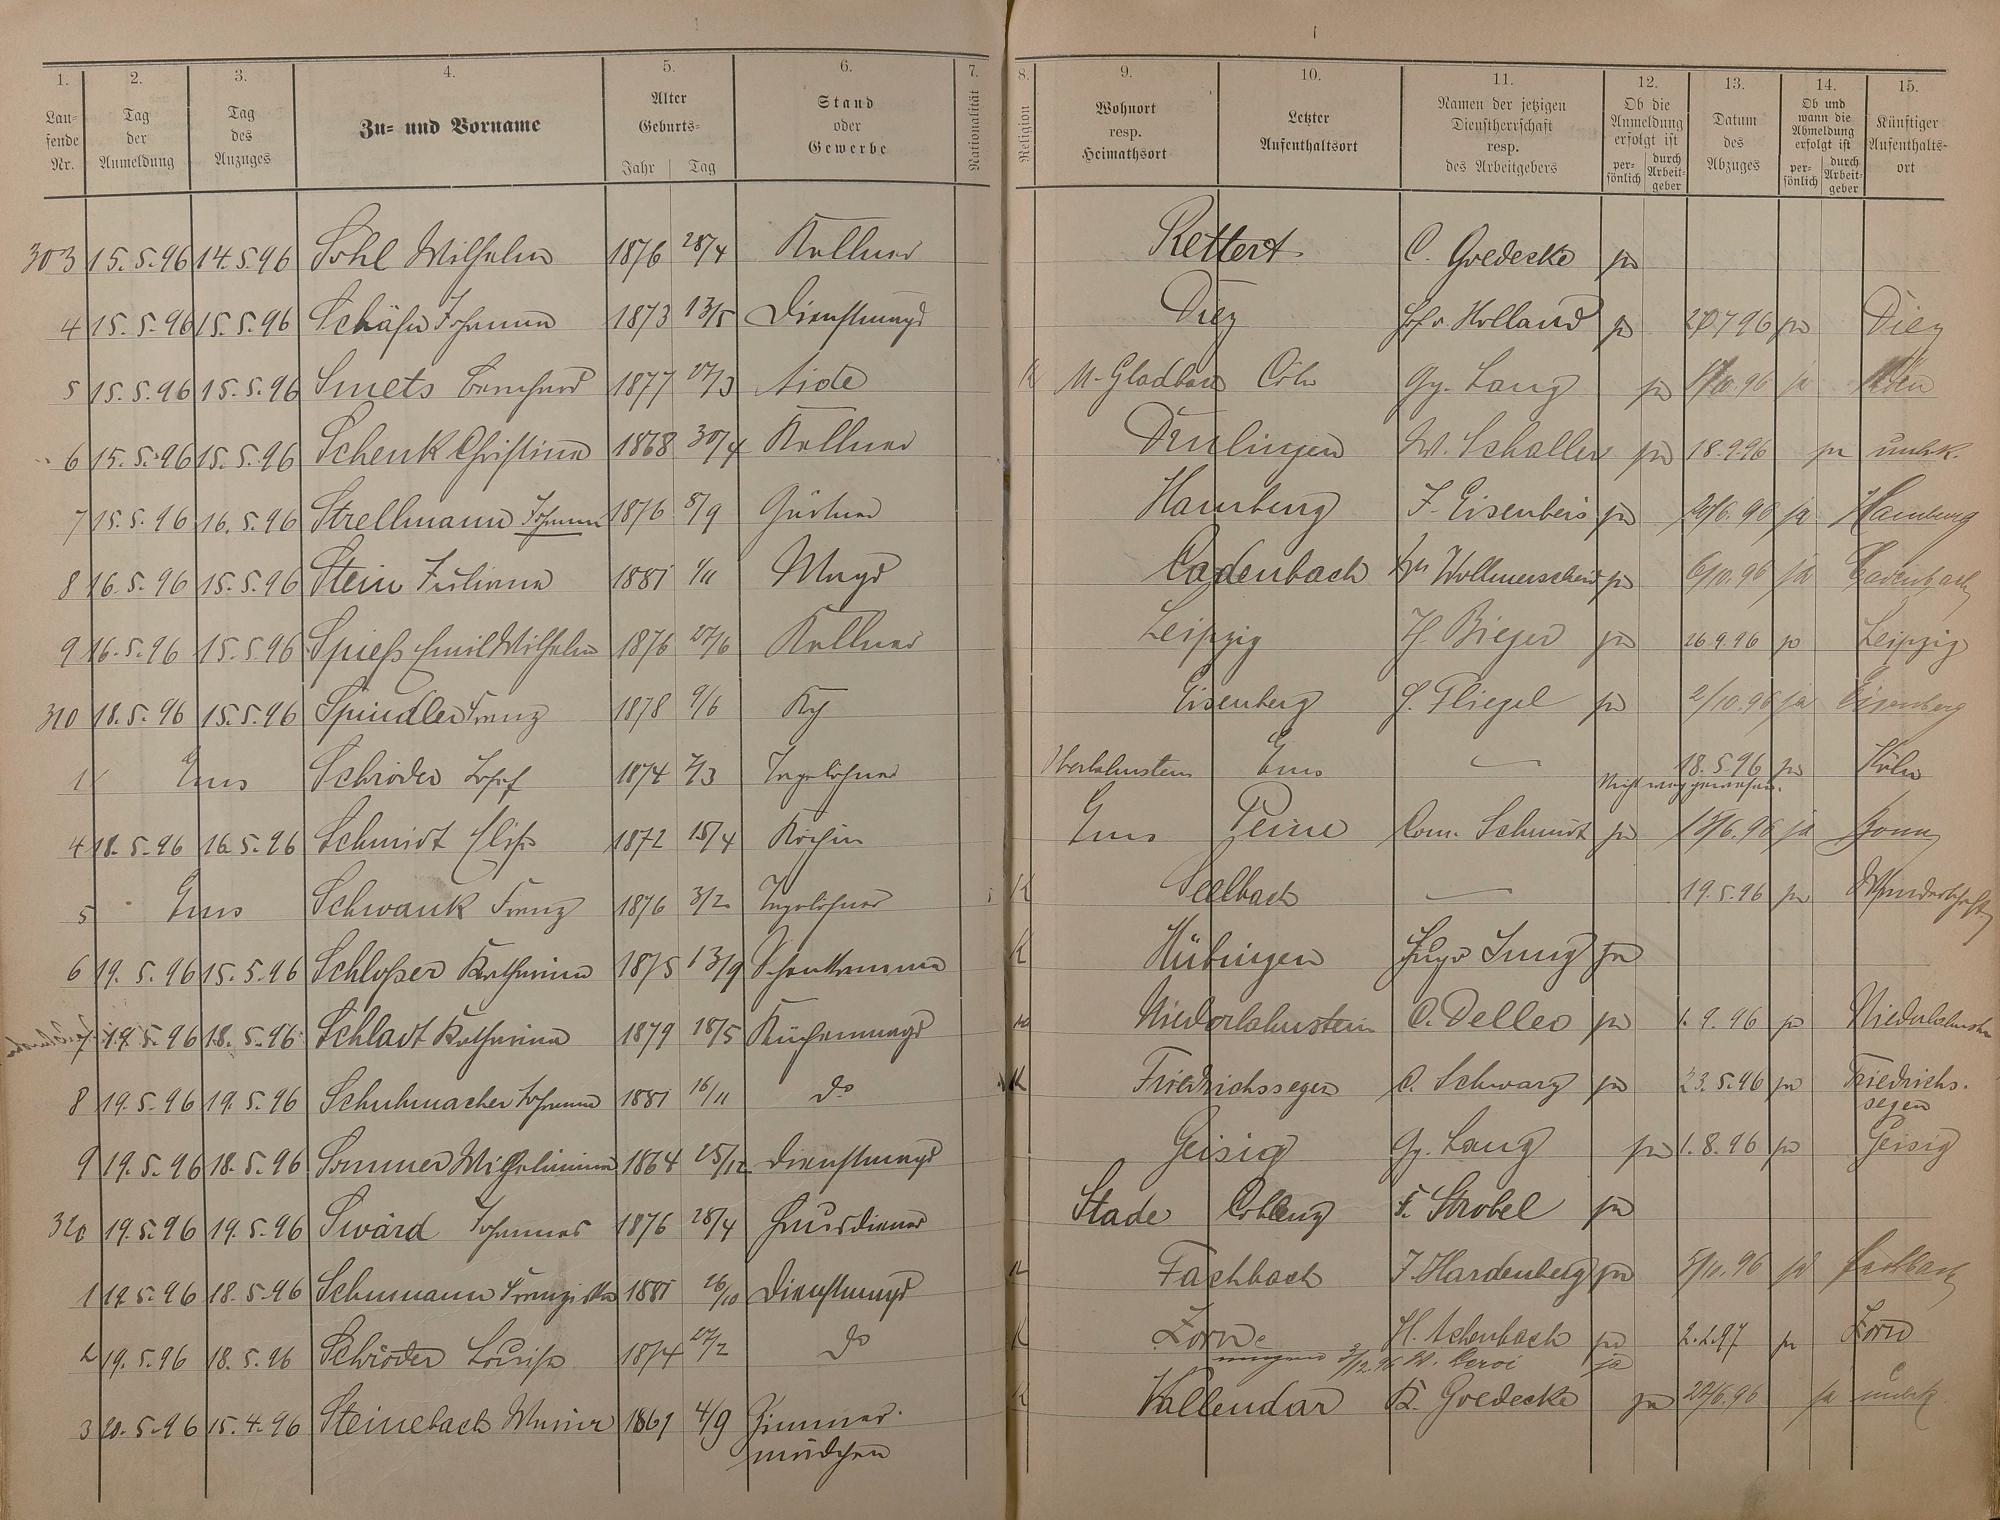 1. 2. 3. 4. 5. 6. 7. 8. 9. 10. 11. 12. 13. 14. 15.
Lau-
fende
Nr.
Tag
der
Anmeldung
Tag
des
Anzuges
Zu= und Vorname
Alter
Geburts-
Jahr Tag
Stand
oder
Gewerbe
Nationalität
Religion
Wohnort
resp.
Heimathsort
Letzter
Aufenthaltsort
Namen der jetzigen
Dienstherrschaft
resp.
des Arbeitgebers
Ob die
Anmeldung
erfolgt ist
per-
sönlich
durch
Arbeit-
geber
Datum
des
Abzuges
Ob und
wann die
Abmeldung
erfolgt ist
per-
sönlich
durch
Arbeit-
geber
Künftiger
Aufenthalts-
ort
303 15.5.96 14.5.96 Sohl Wilhelm 1876 28/4 Kellner Rettert C. Goedecke ja
4 15.5.96 15.5.96 Schäfer Johanna 1873 13/5 Dienstmagd Diez Hof v. Holland ja 96 ja Diez
5 15.5.96 15.5.96 Smets Bernhard 1877 27/3 Aide K M-Gladbach Cöln Gg. Lang ja 96 ja
6 15.5.96 15.5.96 Schenk Christina 1868 30/4 Kellner W. Schaller ja 18.9.96 ja unbk.
7 15.5.96 16.5.96 Strellmann Johann 1876 8/9 Gärtner Hamburg F. Eisenbeis ja ja Hamburg
8 16.5.96 15.5.96 Stein Juliana 1881 1/11 Magd Cadenbach Wollmerscheid ja 6/10.96 ja Cadenbach
9 16.5.96 15.5.96 Spieß Emil Wilhelm 1876 27/6 Kellner Leipzig H. Bieger ja 26.9.96 ja Leipzig
310 18.5.96 15.5.96 Spindler Franz 1878 9/6 Eisenberg G. Fliegel ja 2/10.96 ja Eisenberg
1 Ems Schröder Josef 1874 7/3 Tagelöhner Oberlahnstein Ems — 18.5.96 ja Köln
Nicht weg gewesen.
4 18.5.96 16.5.96 Schmidt Elise 1872 15/4 Köchin Ems Peine Com. Schmidt ja 96 ja Bonn
5 Ems Schwank Franz 1876 3/2 Tagelöhner K Seelbach — 19.5.96 ja Wanderschaft
6 19.5.96 15.5.96 Schloßer Katharina 1875 13/9 K Hübingen Hugo Jung ja
7 19.5.96 18.5.96 Schladt Katharina 1879 18/5 Küchenmagd Niederlahnstein C. Delleo ja 1.9.96 ja Niederlahnstein
8 19.5.96 19.5.96 Schuhmacher Johanna 1881 16/11 do K Friedrichssegen C. Schwarz ja 23.5.96 ja Friedrichs-
segen
9 19.5.96 18.5.96 Sommer Wilhelmina 1864 25/12 Dienstmagd Geisig Gg. Lang ja 1.8.96 ja Geisig
320 19.5.96 19.5.96 Swärd Johannes 1876 28/4 Hausdiener Stade Coblenz F. Strobel ja
1 19.5.96 18.5.96 Schumann Franziska 1881 26/10 Dienstmagd K Fachbach F. Hardenberg ja 5/10.96 ja Fachbach
2 19.5.96 18.5.96 Schröder Louise 1874 27/2 do K Zorn H. Achenbach ja 2.2.97 ja Zorn
3/12.96 W. Leroi ja
3 20.5.96 15.4.96 Steinebach Maria 1861 4/9 Zimmer-
mädchen K Vallendar K. Goedecke ja 96 ja unbk